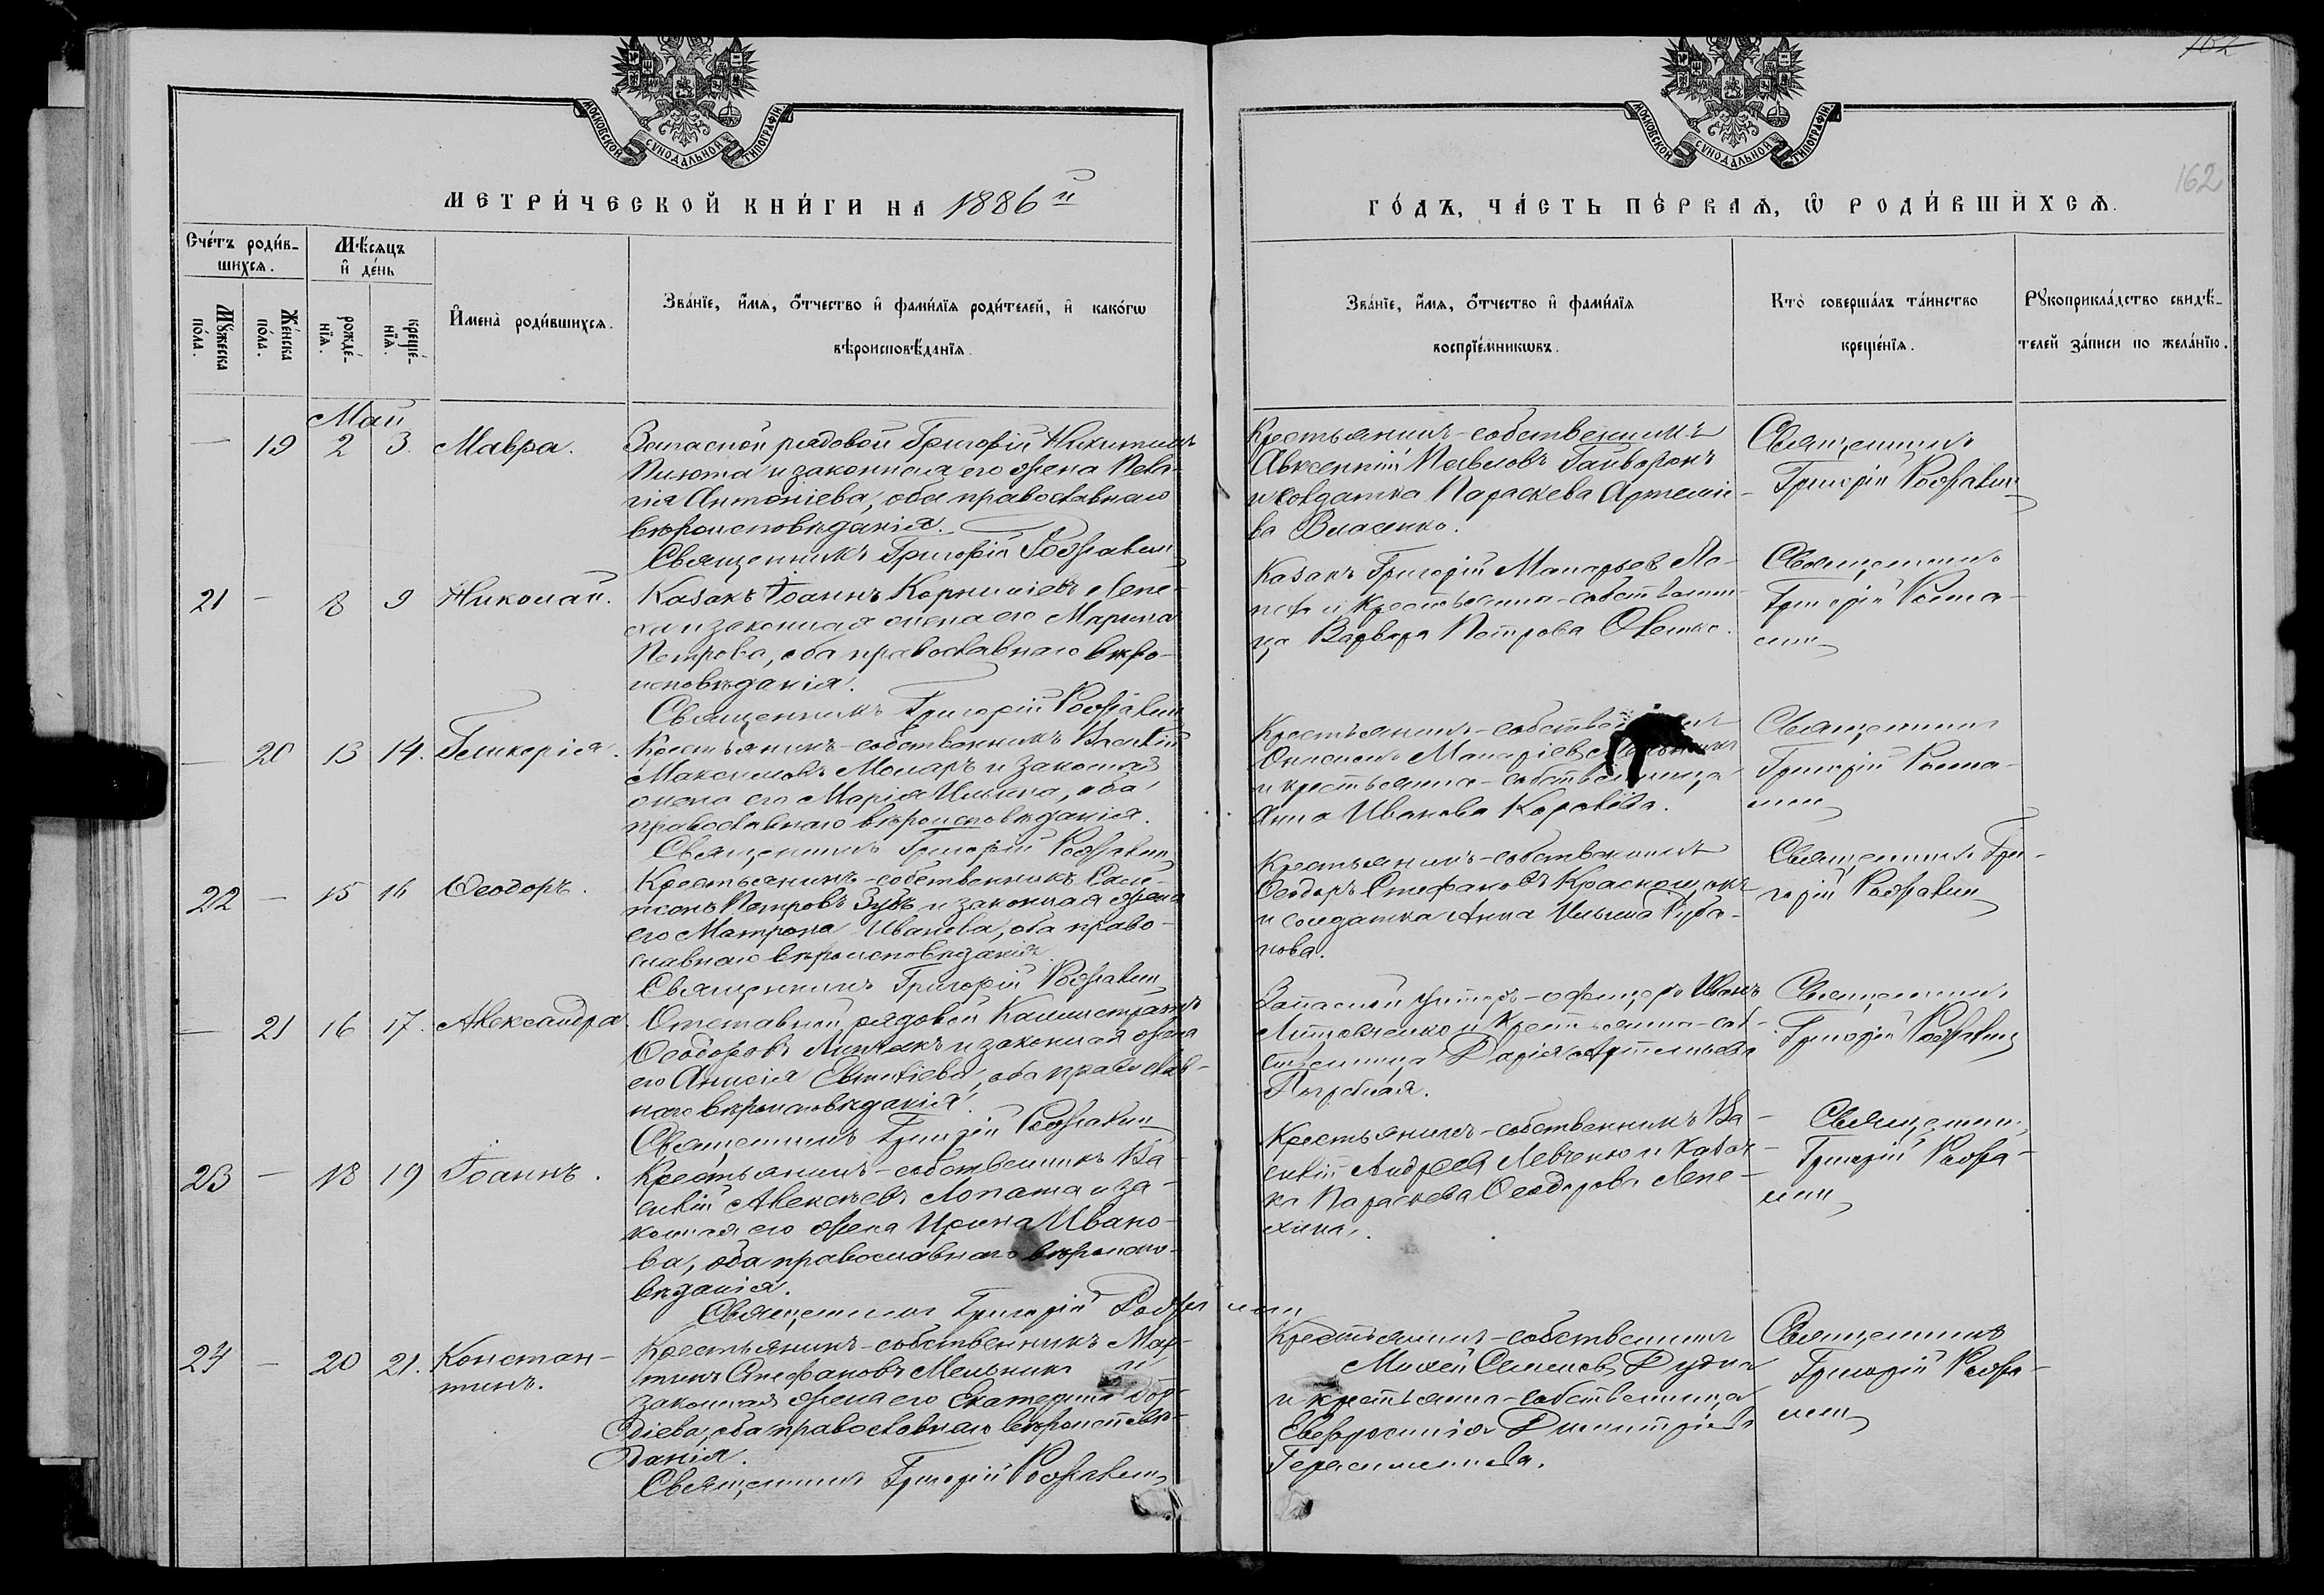 162
МОСКОВСКОЙ СУНОДАЛЬНОЙ ТИПОГРАФІИ
МОСКОВСКОЙ СУНОДАЛЬНОЙ ТИПОГРАФІИ
162
МЕТРИ́ЧЕСКОЙ КНИ́ГИ НА 1886 й
ГО́ДЪ, ЧА́СТЬ ПЕ́РВАѦ, Ѡ РОДИ́ВШИХСѦ.
Счéтъ роди́в-
шихсѧ.
Мѣ́сѧцъ
и҆ дéнь
Мꙋ́жеска
по́ла.
Жéнска
по́ла.
рождé-
нїѧ.
крещé-
нїѧ.
И҆менà роди́вшихсѧ.
Звáнїе, и҆́мѧ, ѻ҆́тчество и҆ фами́лїѧ роди́телей, и҆ какóгѡ
вѣроисповѣ́данїѧ.
Звáнїе, и҆́мѧ, ѻ҆́тчество и҆ фами́лїѧ
воспрїéмникѡвъ.
Кто̀ совершáлъ тáинство
крещéнїѧ.
Рꙋкоприклáдство свидѣ́-
телей зáписи по желáнїю.
Май
— 19 2 3. Мавра.
Запасной рядовой Григорій Никитинъ
Пилюта и законная его жена Пела-
гія Антоніева, оба православнаго
вѣроисповѣданія.
Священникъ Григорій
Крестьянинъ-собственникъ
Авксентій Павловъ Гайворонъ
и солдатка Параскева Артеміе-
ва Власенко.
Священникъ
Григорій
21 — 8 9 Николай.
Казакъ Іоаннъ Корниліевъ Лепе-
ха и законная жена его Марина
Петрова, оба православнаго вѣро-
исповѣданія.
Священникъ Григорій
Казакъ Григорій Макарьев
и крестьянка-собственни-
ца Варвара Петрова
Священникъ
Григорій
— 20 13 14. Гликерія.
Крестьянинъ-собственникъ Василій
Максимовъ Моларъ и законная
жена его Марія Ильина, оба
православнаго вѣроисповѣданія.
Священникъ Григорій
Крестьянинъ-
Макаріевъ
и крестьянка-собственница
Анна Иванова
Священникъ
Григорій
22 — 15 16 Ѳеодоръ.
Крестьянинъ-собственникъ Самп-
сонъ Петровъ Зубъ и законная жена
его Матрона Иванова, оба право-
славнаго вѣроисповѣданія.
Священникъ Григорій
Крестьянинъ-собственникъ
Ѳеодоръ Стефановъ
и солдатка Анна Ильина Руба-
нова.
Священникъ Гри-
горій
— 21 16 17. Александра
Отставной рядовой Каллистратъ
Ѳеодоровъ и законная жена
его Анисія, оба православ-
наго вѣроисповѣданія.
Священникъ Григорій
Запасной унтеръ-офицеръ Иванъ
Литовченко и крестьянка-соб-
ственница Дарія Артемьева
Погребная.
Священникъ
Григорій
23 — 18 19 Іоаннъ.
Крестьянинъ-собственникъ Ва-
силій Алексѣевъ Лопата и за-
конная его жена Ирина Ивано-
ва, оба православнаго вѣроиспо-
вѣданія.
Священникъ Григорій
Крестьянинъ-собственникъ Ва-
силій Андреевъ Левченко и казач-
ка Параскева Ѳеодорова Лепе-
хина.
Священникъ
Григорій
24 — 20 21. Констан-
тинъ.
Крестьянинъ-собственникъ Мар-
тинъ Стефановъ Мельникъ и
законная жена его Екатерина Гор-
діева, оба православнаго вѣроисповѣ-
данія.
Священникъ Григорій
Крестьянинъ-собственникъ
Дудка
и крестьянка-собственница
Евфросинія Димитріева
Герасименкова.
Священникъ
Григорій